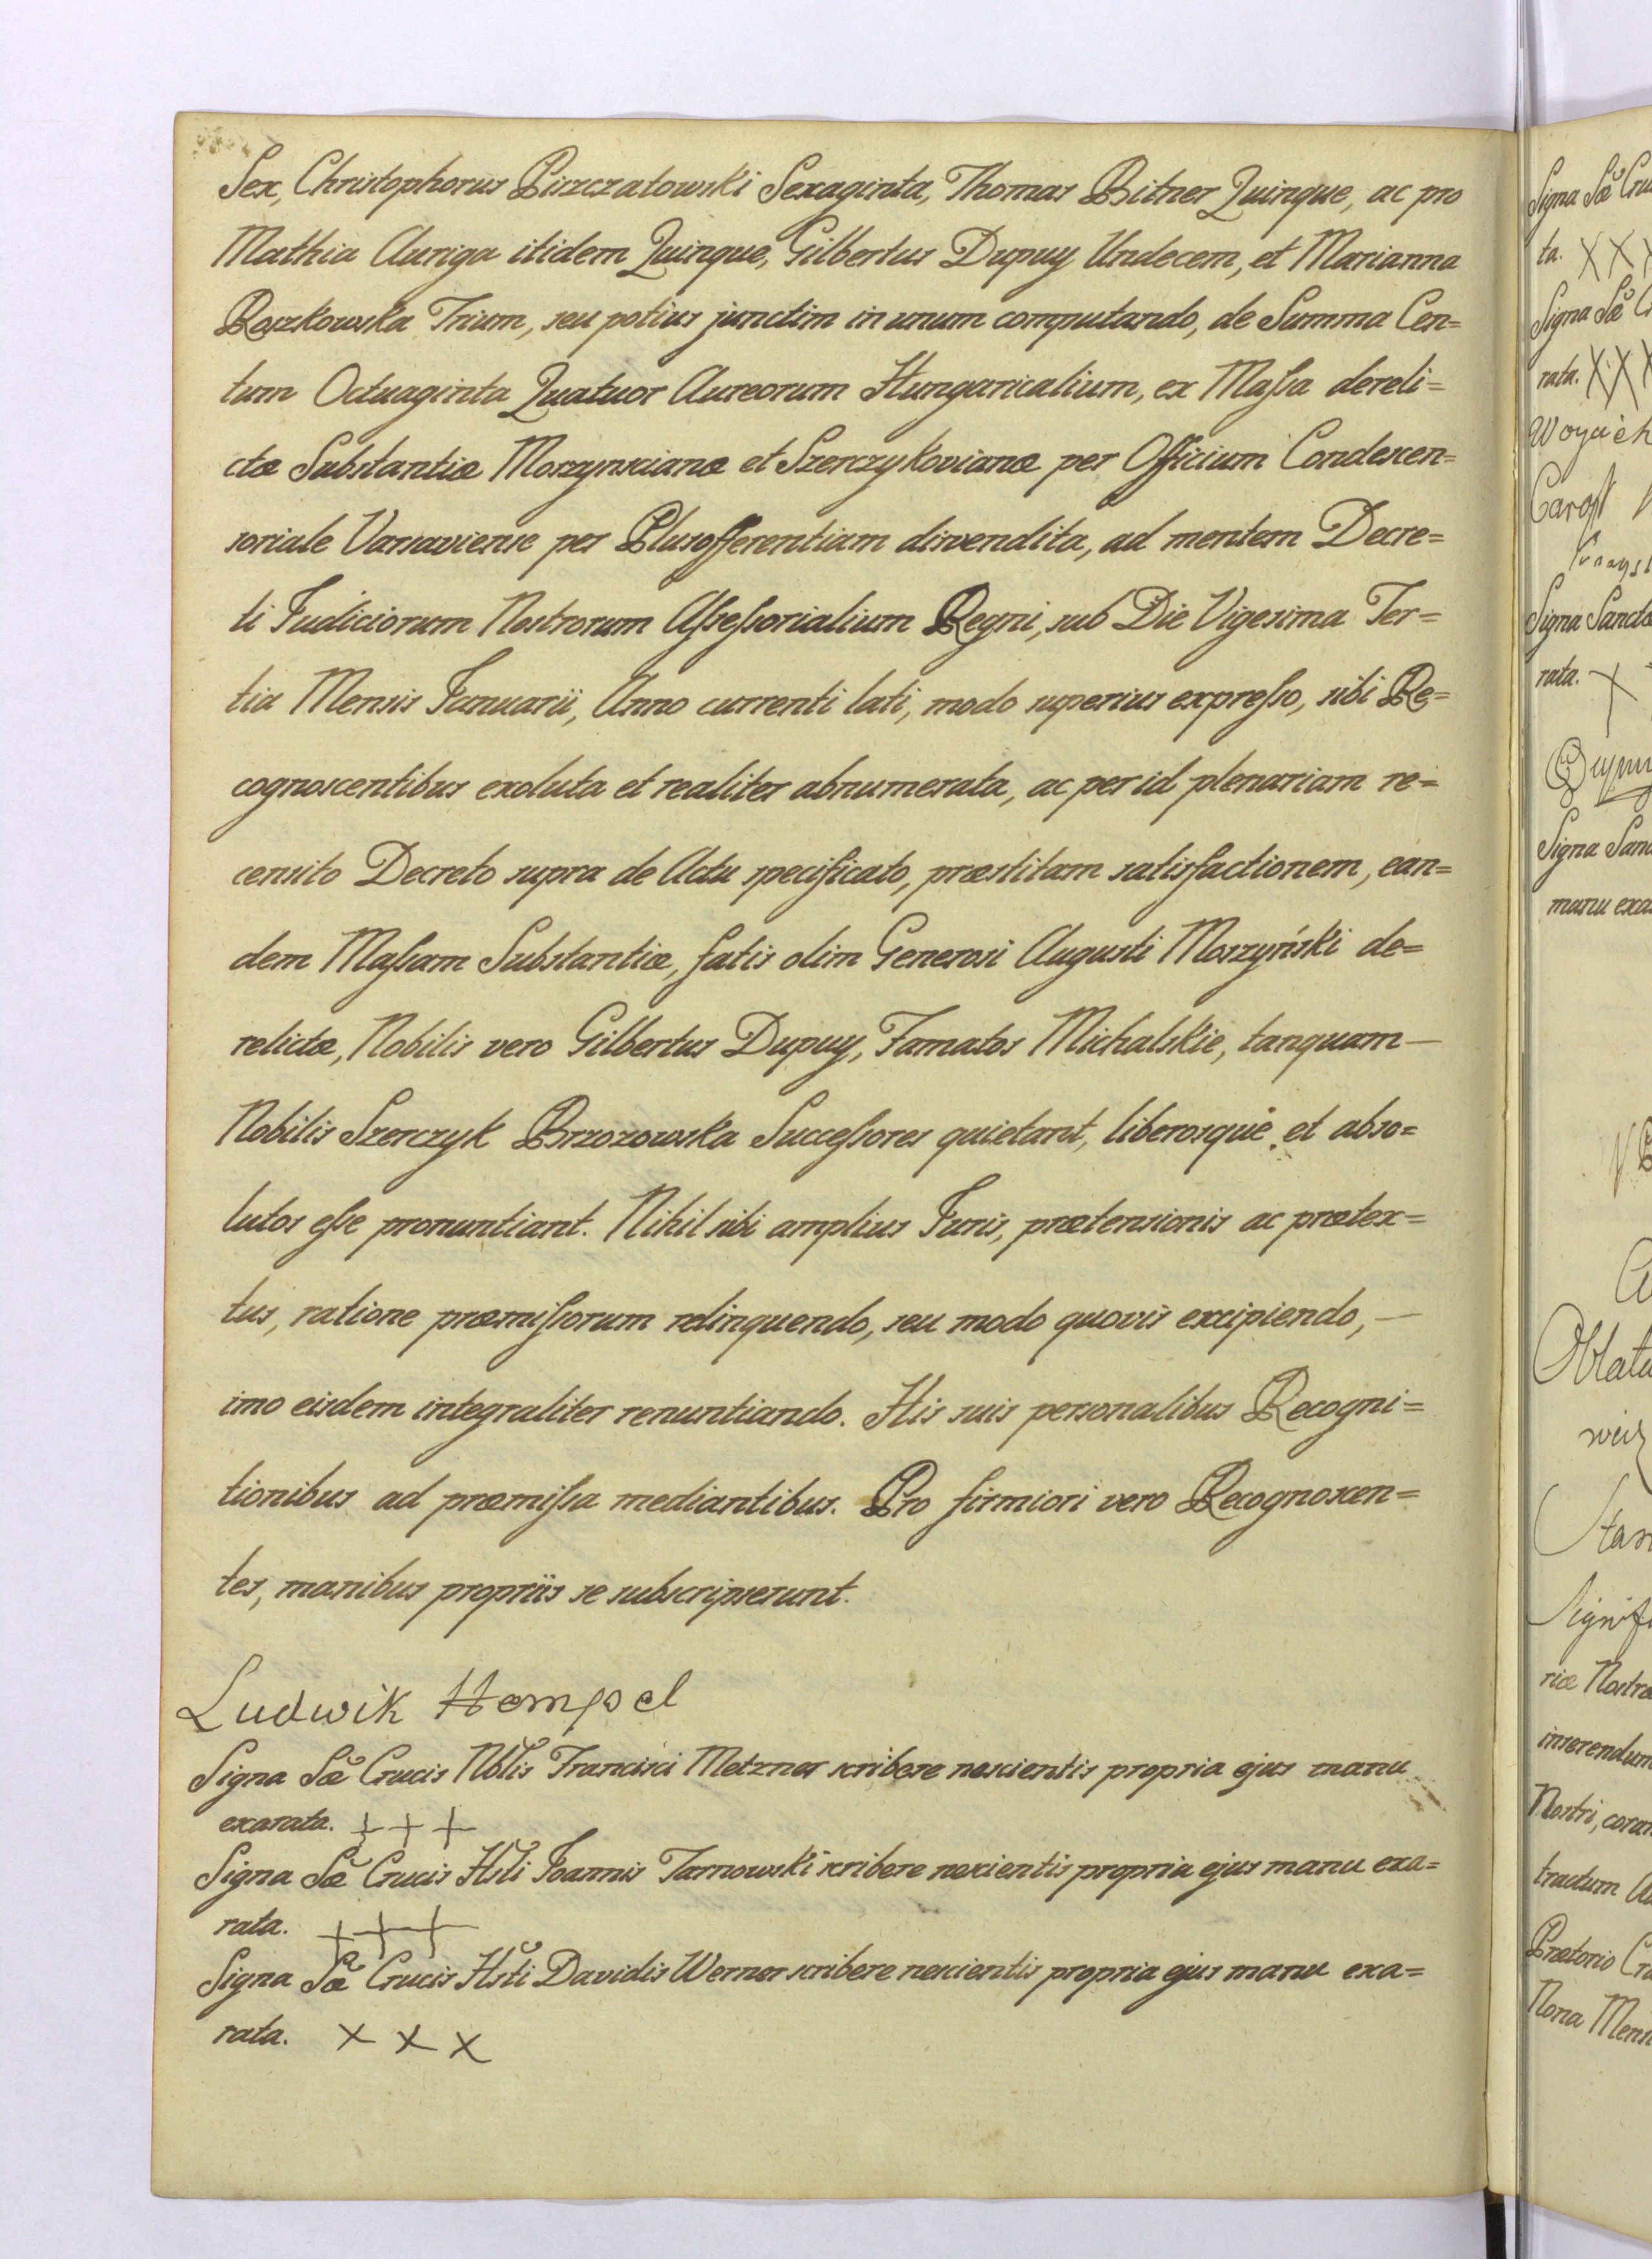 Sex, Christophorus Piszczatowski Sexaginta, Thomas Bitner Quinque, ac pro
Mathia Auriga itidem Quinque, Gilbertus Dupuy Undecem, et Marianna
Roszkowska Trium, seu potius junctim in unum computando, de Summa Cen=
tum Octuaginta Quatuor Aureorum Hungaricalium, ex Maſsa dereli=
ctæ Substantiæ Moszynscianæ et Szerczykovianæ per Officium Condescen=
soriale Varsaviense per Plusofferentiam divendita, ad mentem Decre=
ti Judiciorum Nostrorum Aſseſsorialium Regni, sub Die Vigesima Ter=
tia Mensis Januarii, Anno currenti lati, modo superius expreſso, sibi Re=
cognoscentibus exoluta et realiter abnumerata, ac per id plenariam re=
censito Decreto supra de Actu specificato, præstitam satisfactionem, ean=
dem Maſsam Substantiæ, fatis olim Generosi Augusti Moszyński de=
relictæ, Nobilis vero Gilbertus Dupuy, Famatos Michalskie, tanquam —
Nobilis Szerczyk Brzozowska Succeſsores quietant, liberosque et abso=
lutos eſse pronuntiant. Nihil sibi amplius Juris, prætensionis ac prætex=
tus, ratione præmiſsorum relinquendo, seu modo quovis excipiendo, —
imo eisdem integraliter renuntiando. His suis personalibus Recogni=
tionibus ad præmiſsa mediantibus. Pro firmiori vero Recognoscen=
tes, manibus propriis se subscripserunt.
Ludwik Hempel
Signa Sæ Crucis Nblis Francisci Metzner scribere nescientis propria ejus manu
exarata. + + +
Signa Sæ Crucis Hsti Joannis Tarnowski scribere nescientis propria ejus manu exa=
rata. + + +
Signa Sæ Crucis Hsti Davidis Werner scribere nescientis propria ejus manu exa=
rata. x x x
Signa Sæ
ta. X X
Signa Sæ
rata. X X
Signa
rata. X
Signa
manu
riæ
Nostri,
Prætorio
Nona